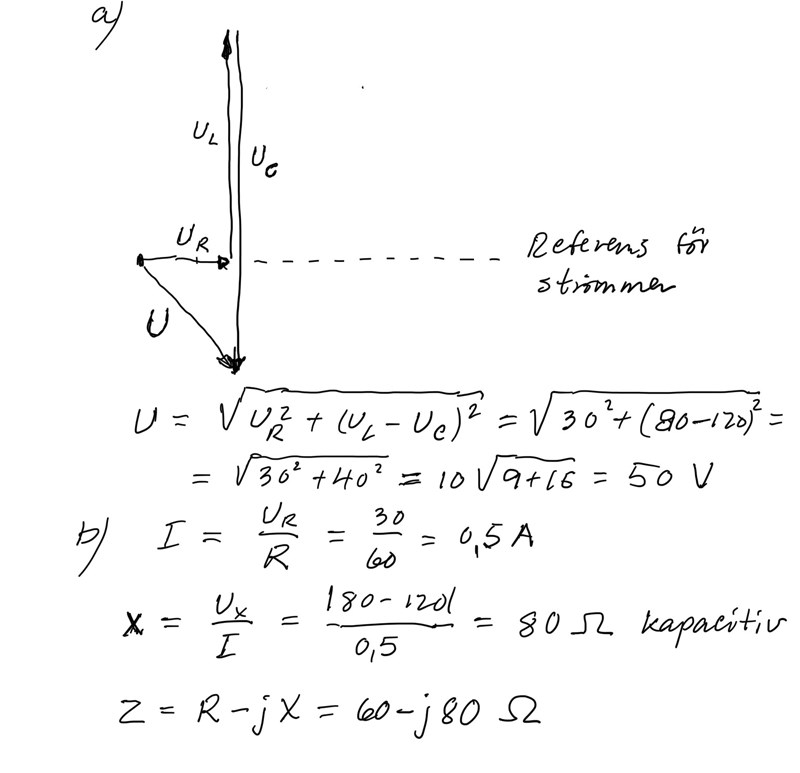 a)
U_L
U_C
U_R
Referens för
strömmen
U
U = √(U_R² + (U_L - U_C)²) = √(30² + (80-120)²) =
= √(30² + 40²) = 10√(9+16) = 50 V
b) I = U_R/R = 30/60 = 0,5 A
X = U_X/I = |80-120|/0,5 = 80 Ω kapacitiv
Z = R - jX = 60 - j80 Ω